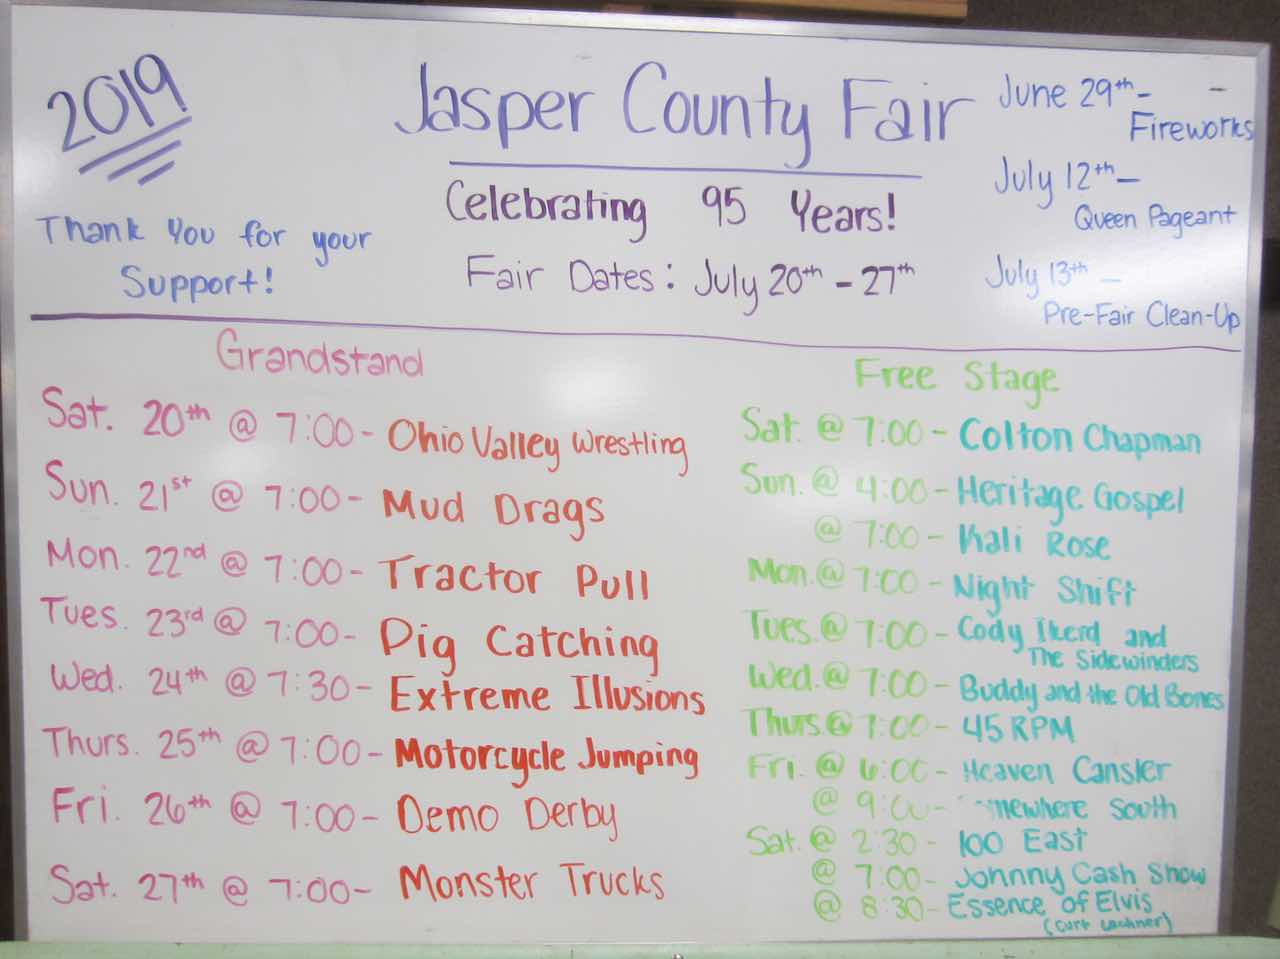 2019
Jasper County Fair
Celebrating 95 Years!
Fair Dates: July 20th - 27th
Thank You for your
Support!
June 29th- -
Fireworks
July 12th-
Queen Pageant
July 13th -
Pre-Fair Clean-Up
Grandstand
Sat. 20th @ 7:00- Ohio Valley Wrestling
Sun. 21st @ 7:00- Mud Drags
Mon. 22nd @ 7:00- Tractor Pull
Tues. 23rd @ 7:00- Pig Catching
Wed. 24th @ 7:30- Extreme Illusions
Thurs. 25th @ 7:00- Motorcycle Jumping
Fri. 26th @ 7:00- Demo Derby
Sat. 27th @ 7:00- Monster Trucks
Free Stage
Sat. @ 7:00- Colton Chapman
Sun. @ 4:00- Heritage Gospel
@ 7:00- Kali Rose
Mon. @ 7:00- Night Shift
Tues. @ 7:00- Cody Ikerd and
The Sidewinders
Wed. @ 7:00- Buddy and the Old Bones
Thurs @ 7:00- 45 RPM
Fri. @ 6:00- Heaven Cansler
@ 9:00- mewhere South
Sat. @ 2:30- 100 East
@ 7:00- Johnny Cash Show
@ 8:30- Essence of Elvis
(Curt Lechner)